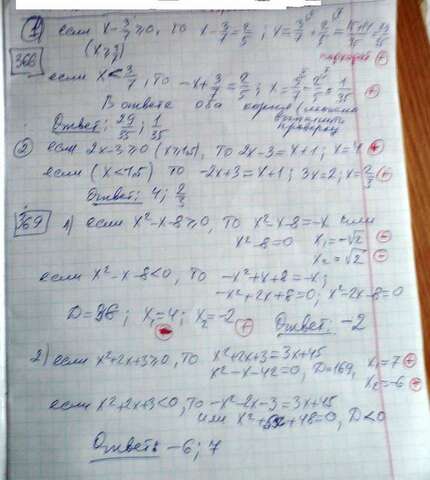 1) если x - 3/7 ≥ 0, то x - 3/7 = 2/5 ; x = 3/7 + 2/5 = 15+14/35 = 29/35
(x ≥ 3/7)
368
если x < 3/7, то -x + 3/7 = 2/5 ; x = 3/7 - 2/5 = 1/35 +
В ответе оба корня (
проверку
Ответ: 29/35 ; 1/35
2) если 2x-3 ≥ 0 (x ≥ 1,5), то 2x-3 = x+1 ; x=4 +
если (x < 1,5) то -2x+3 = x+1 ; 3x=2 ; x = 2/3 +
Ответ: 4 ; 2/3
369 1) если x²-x-8 ≥ 0, то x²-x-8 = -x или
x²-8=0 x₁=-√2 -
x₂=√2 -
если x²-x-8 < 0, то -x²+x+8 = -x ;
-x²+2x+8=0 ; x²-2x-8=0
D=36 ; x₁=4 ; x₂=-2 +
Ответ: -2
2) если x²+2x+3 ≥ 0, то x²+2x+3 = 3x+45
x²-x-42=0, D=169, x₁=7 +
x₂=-6 +
если x²+2x+3 < 0, то -x²-2x-3 = 3x+45
или x²+5x+48=0, D<0
Ответ: -6 ; 7